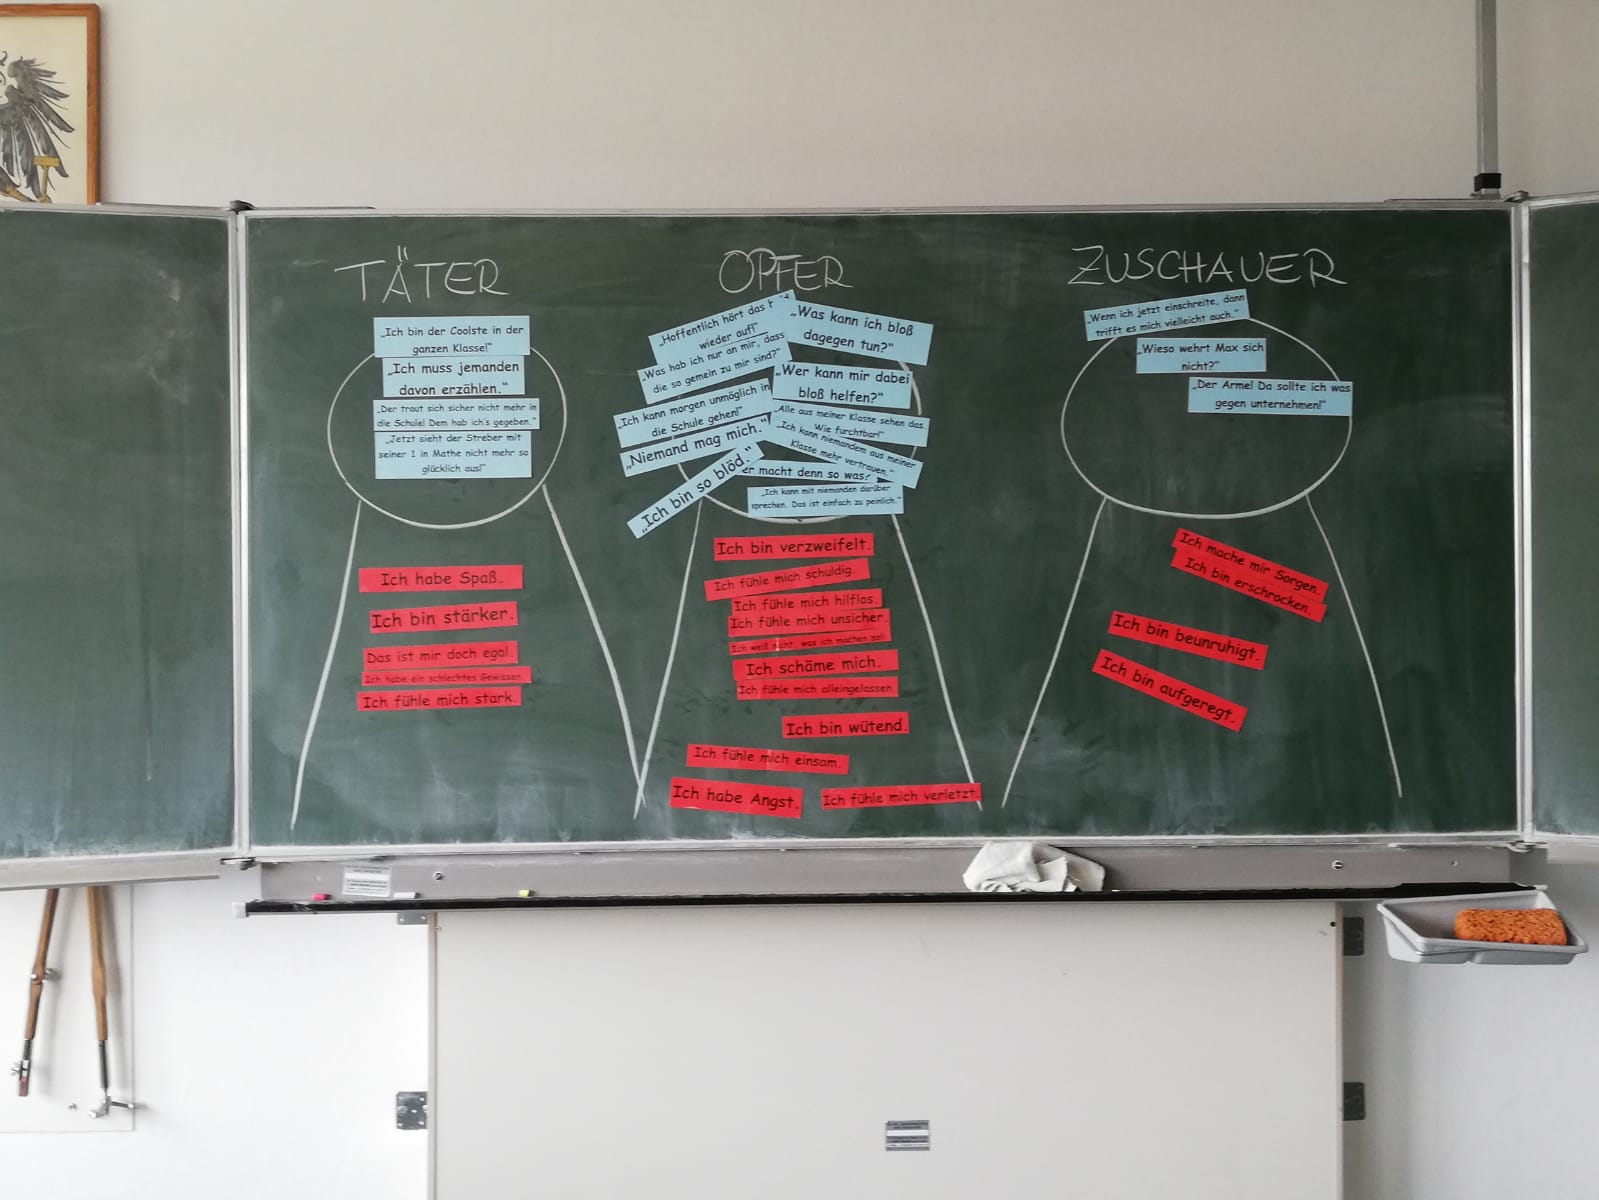 TÄTER
„Ich bin der Coolste in der
ganzen Klasse!“
„Ich muss jemanden
davon erzählen.“
„Der traut sich sicher nicht mehr in
die Schule! Dem hab ich's gegeben.“
„Jetzt sieht der Streber mit
seiner 1 in Mathe nicht mehr so
glücklich aus!“
Ich habe Spaß.
Ich bin stärker.
Das ist mir doch egal.
Ich habe ein schlechtes Gewissen.
Ich fühle mich stark.
OPFER
„Hoffentlich hört das
wieder auf!“
„Was kann ich bloß
dagegen tun?“
„Was hab ich nur an mir, dass
die so gemein zu mir sind?“
„Wer kann mir dabei
bloß helfen?“
„Ich kann morgen unmöglich in
die Schule gehen!“
„Alle aus meiner Klasse sehen das.
Wie furchtbar!“
„Niemand mag mich.“
„Ich kann niemandem aus meiner
Klasse mehr vertrauen.“
„Ich bin so blöd.“
er macht denn so was?
„Ich kann mit niemanden darüber
sprechen. Das ist einfach zu peinlich.“
Ich bin verzweifelt.
Ich fühle mich schuldig.
Ich fühle mich hilflos.
Ich fühle mich unsicher.
Ich weiß nicht, was ich machen soll.
Ich schäme mich.
Ich fühle mich alleingelassen.
Ich bin wütend.
Ich fühle mich einsam.
Ich habe Angst.
Ich fühle mich verletzt.
ZUSCHAUER
„Wenn ich jetzt einschreite, dann
trifft es mich vielleicht auch.“
„Wieso wehrt Max sich
nicht?“
„Der Arme! Da sollte ich was
gegen unternehmen!“
Ich mache mir Sorgen.
Ich bin erschrocken.
Ich bin beunruhigt.
Ich bin aufgeregt.